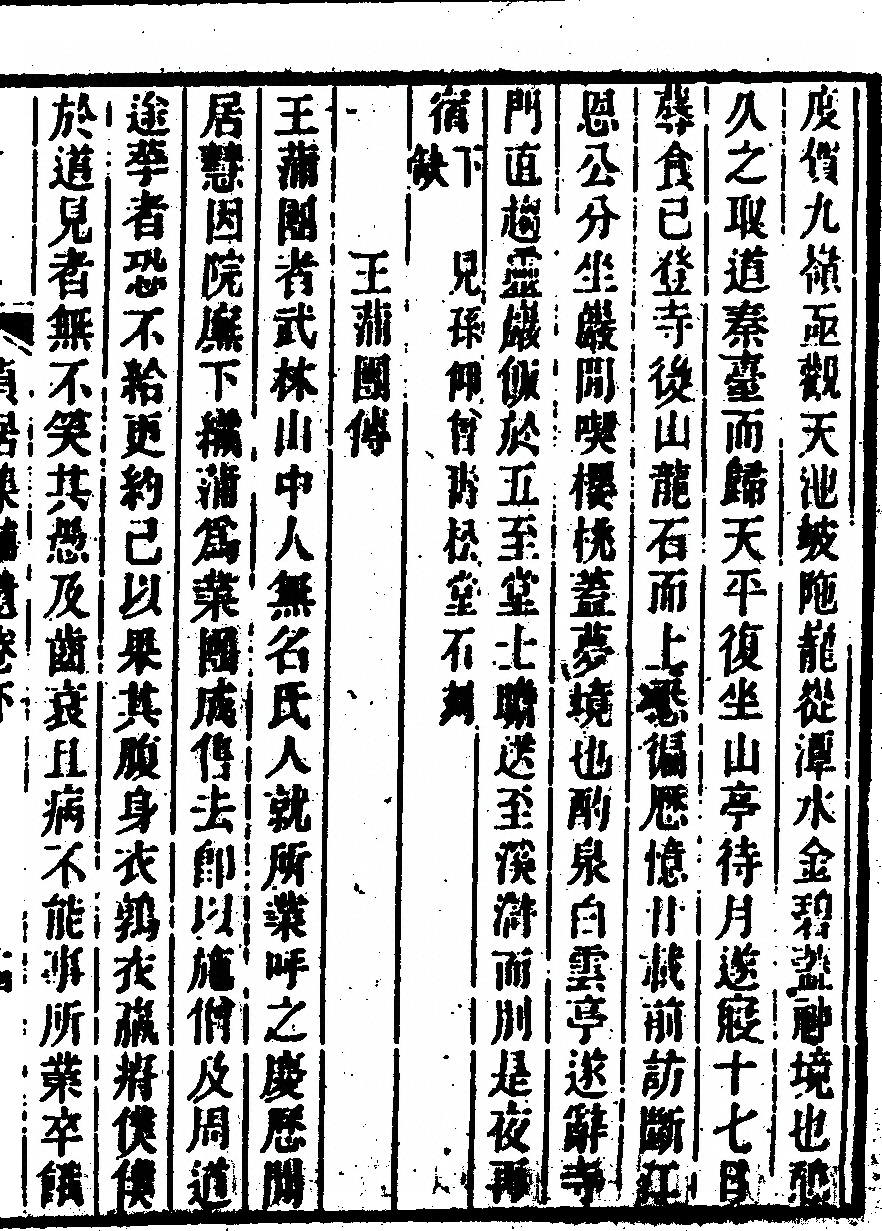 度債九嶺亟觀天池蛂陁龍從潭水金碧盡神境也憩
久之取道秦臺而歸天平復坐山亭待月遂寢十七日
蓐食已登寺後山龍石而上悉徧歷憶廿載前訪斷江
恩公分坐巖間喫櫻桃蓋夢境也酌泉白雲亭遂辭寺
門直趨靈巖飯於五至堂士瞻送至溪滸而別是夜再
宿下缺 見孫仰曾聽松堂石刻
王蒲團傳
王蒲團者武林山中人無名氏人就所業呼之慶歷間
居慧因院廡下織蒲爲業團成俏去卽以施僧及周道
途莩者恐不給更約己以果其腹身衣鶉衣羸瘠僕僕
於道見者無不笑其愚及齒衰且病不能事所業卒餓
貞居集補遺卷下